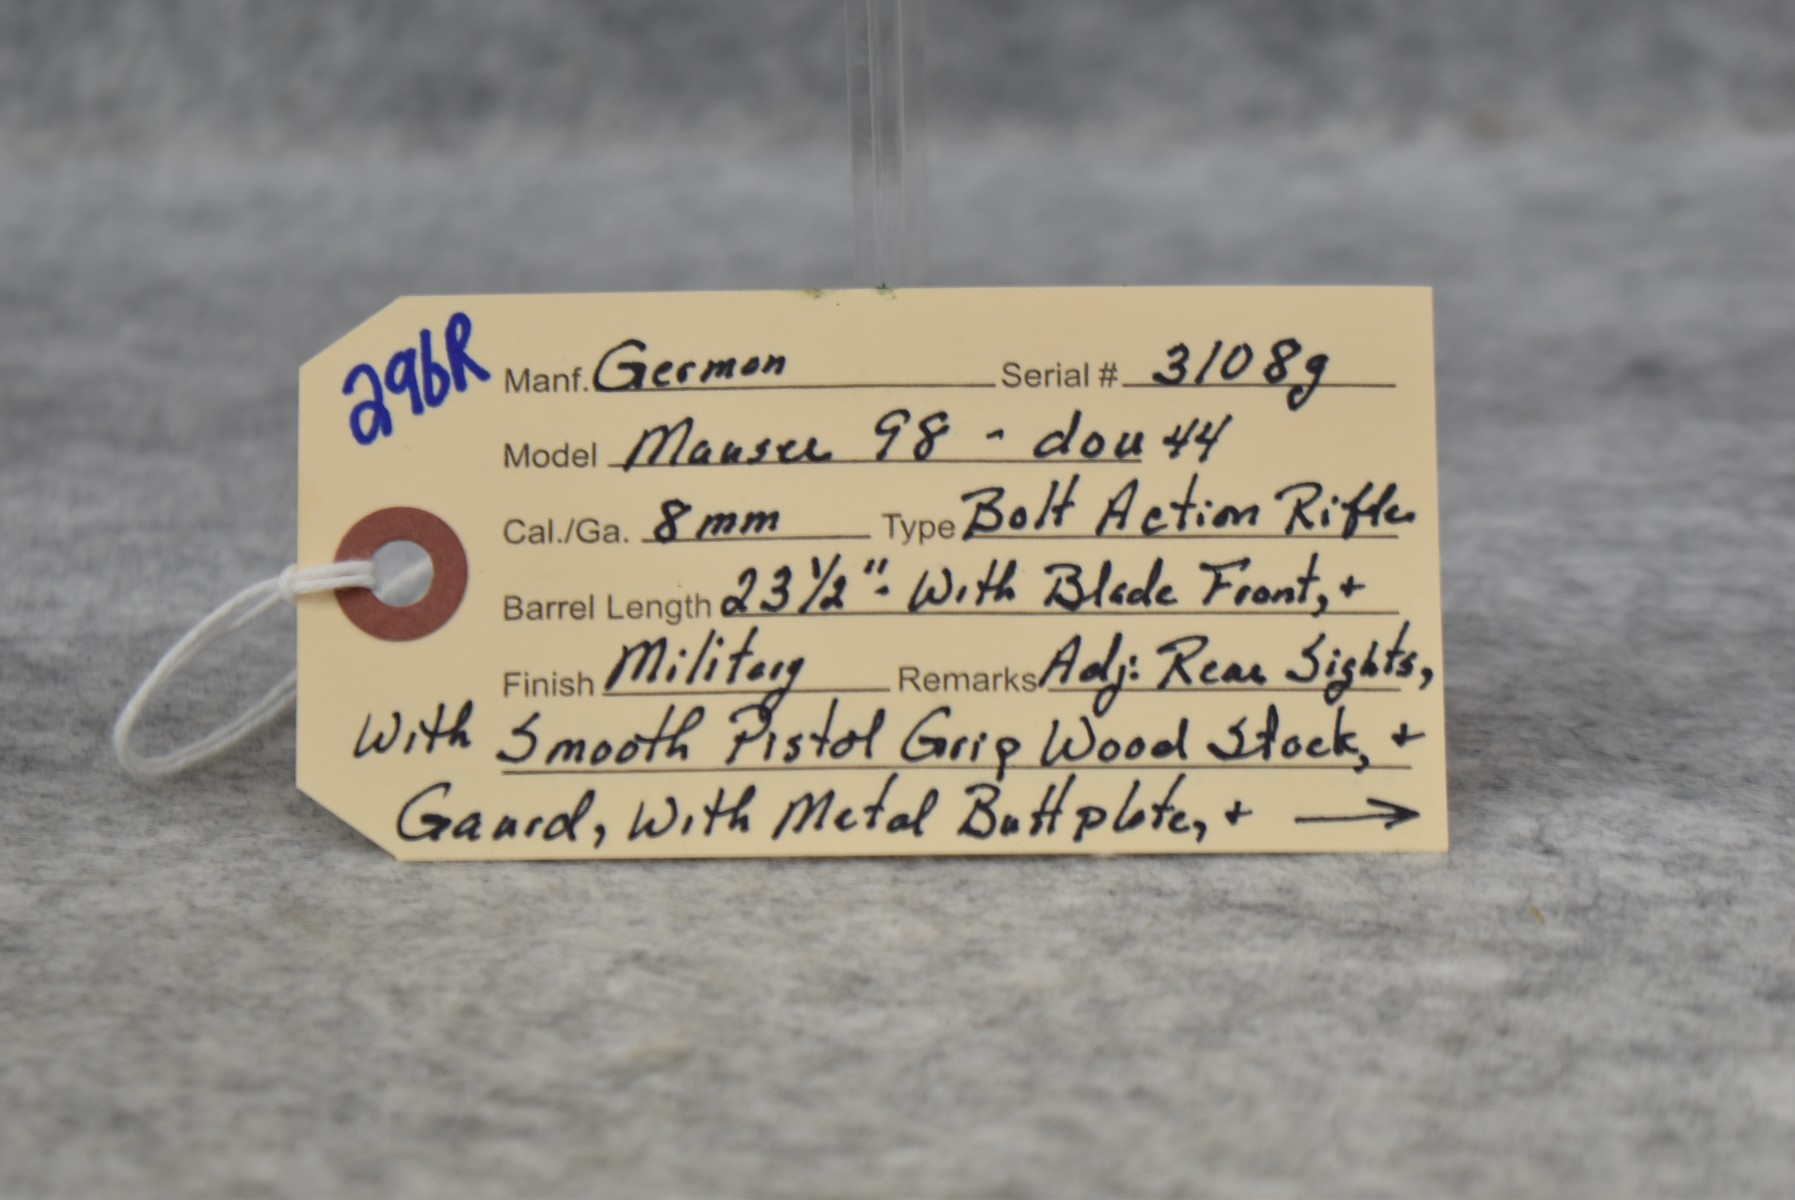 296R
Manf. German Serial # 3108g
Model Mauser 98 - dou 44
Cal./Ga. 8mm Type Bolt Action Rifle
Barrel Length 23 1/2" - With Blade Front, +
Finish Military Remarks Adj: Rear Sights,
With Smooth Pistol Grip Wood Stock, +
Gaurd, With Metal Buttplate, + →